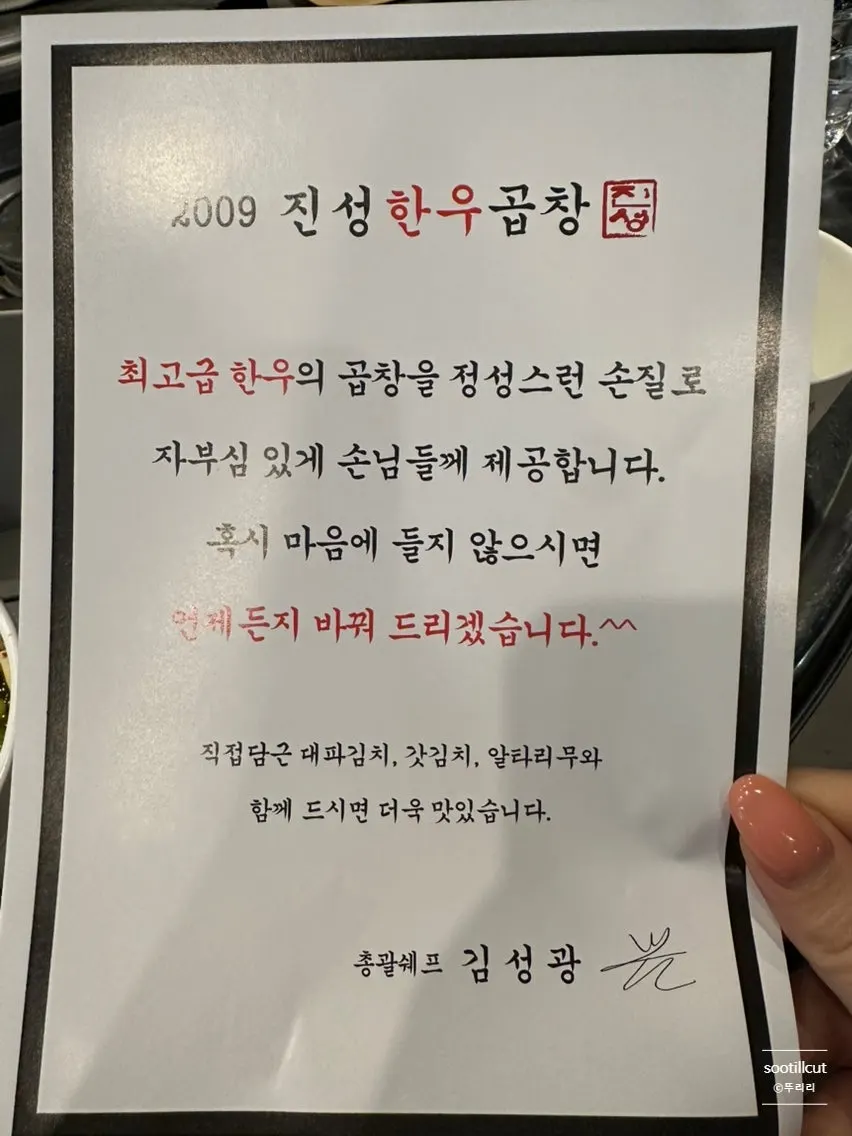 2009 진성한우곱창 진성
최고급 한우의 곱창을 정성스런 손질로
자부심 있게 손님들께 제공합니다.
혹시 마음에 들지 않으시면
언제든지 바꿔 드리겠습니다.^^
직접담근 대파김치, 갓김치, 알타리무와
함께 드시면 더욱 맛있습니다.
총괄쉐프 김성광
sootillcut
©뚜리리